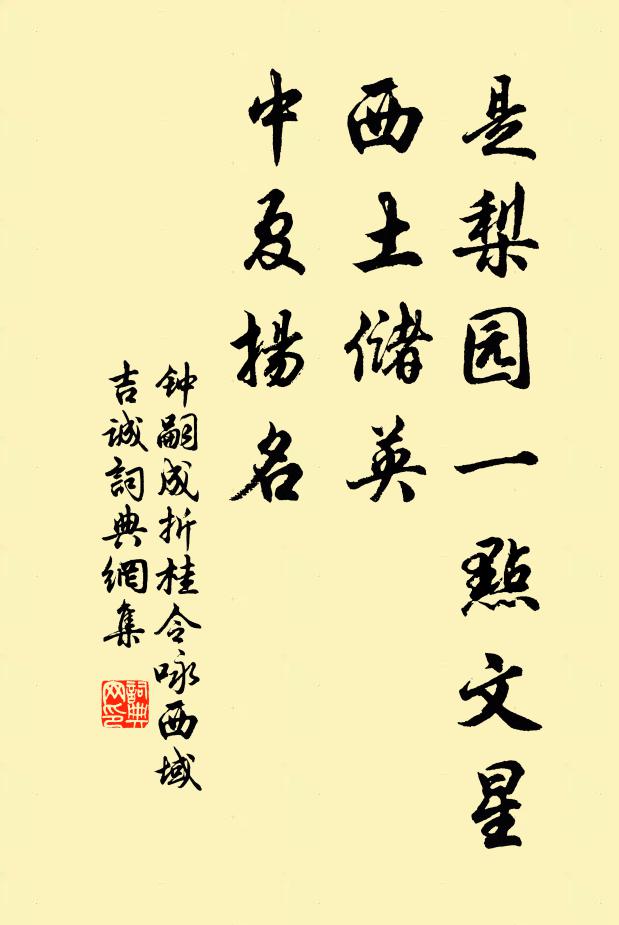 是梨园一點文星
西土儲英
中夏揚名
钟嗣成折桂令咏西域
吉诚詞典網集
詞典
网印